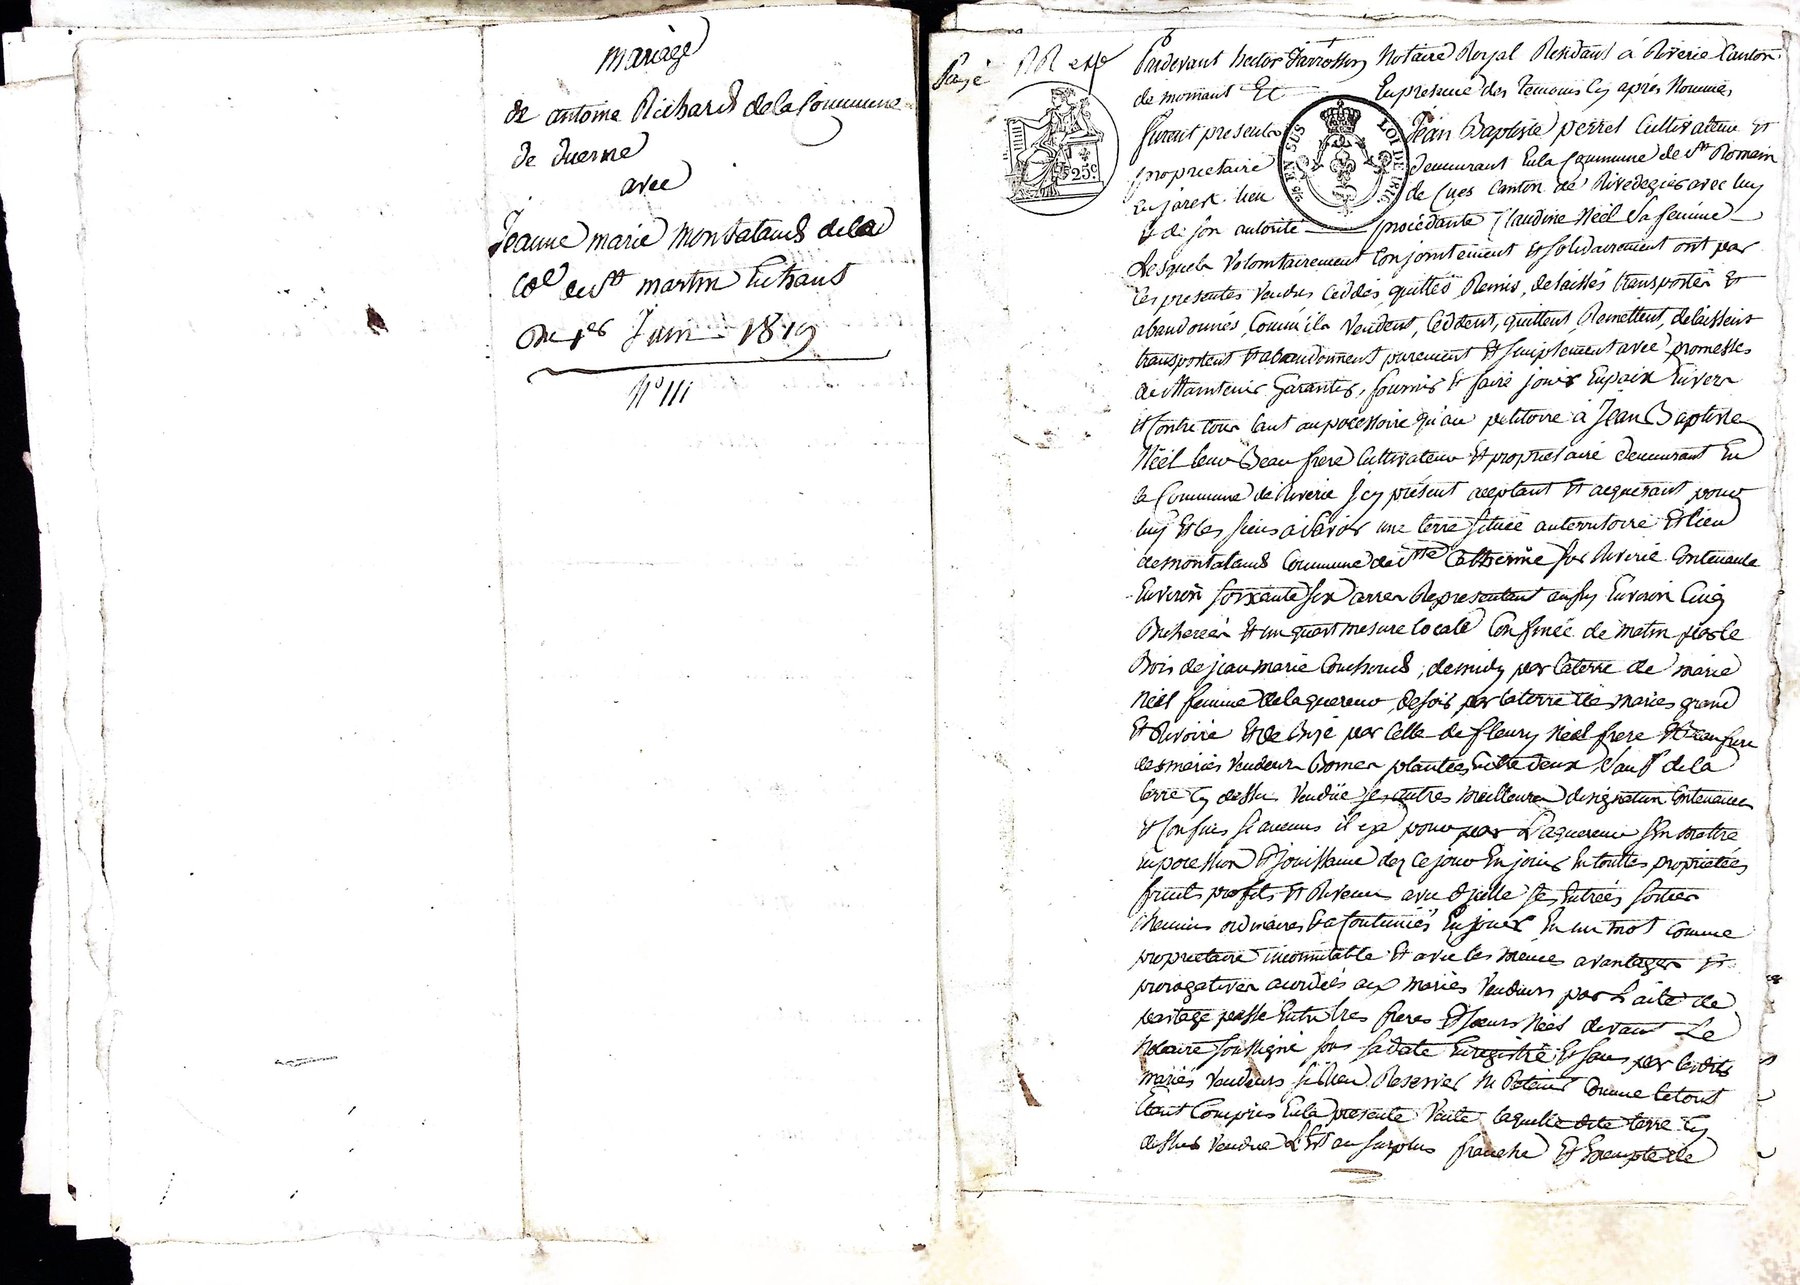 mariage
de antoine Richard de la Commune
de duerne
avec
Jeanne marie montaland de la
Coe de St martin En haut
Du 1er Juin 1819
N° 111
Payé
Pardevant hector Notaire Royal Résidant à Riverie Canton
de mornant Et En presence des Temoins Cy après Nommés
furent presents Jean Baptiste perret Cultivateur Et
proprietaire demeurant En la Commune de St Romain
En jarest lieu de Canton de Rivedegier avec luy
Et de son autorité procédante Claudine Néel Sa femme
Lesquels volontairement Conjointement Et solidairement ont par
Ces presentes vendus Ceddés, quittés, Remis, delaissés transportés Et
abandonnés, Comm'ils vendent, Ceddent, quittent, Remettent, delaissent
transportent Et abandonnent purement Et simplement avec promesses
de Maintenir Garantir, fournir Et faire jouir En paix Envers
Et Contre tous tant au possessoire qu'au petitoire à Jean Baptiste
Néel leur Beau frere Cultivateur Et proprietaire demeurant En
la Commune de Riverie Icy présent acceptant Et acquerant pour
luy Et les siens a savoir une terre située au territoire Et lieu
de montaland Commune de Ste Catherine sur Riverie Contenante
Environ soixante six arres Representant aussy Environ Cinq
Bicherées Et un quart mesure locale Confinée de matin par le
Bois de jean marie Couchoud, de midy par la terre de marie
Néel femme de laquereur, de soir par la terre des mariés grand
Et Rivoire Et de Bize par Celle de fleury Néel frere Et Beau frere
des mariés vendeurs Bornes plantées Entre deux, Sauf de la
terre Cy dessus venduë ses autres meilleures designation Contenances
Et Confins si aucuns il y a pour par L'aquereur s'en mettre
En possession Et jouissance dez Ce jour En jouir En toutes propriétés
fruits profits Et Revenus avec d'jcelle ses Entrées sorties
Chemins ordinaires Et a Coutumés En jouir En un mot Comme
proprietaire incommutable Et avec les mêmes avantages Et
prorogatives acordées aux mariés vendeurs par L'acte de
partage passé Entre les freres Et soeurs Néel devant Le
Notaire soussigné sous sa date Enregistré Et sans par lesdits
mariés vendeurs si Rien Reserver Ni Retenir Comme le tout
Etant Compris En la presente Vente laquelle dite terre Cy
dessus vendue Est au surplus franche Et Exempte de
25c
EN SUS
LOI DE 1816